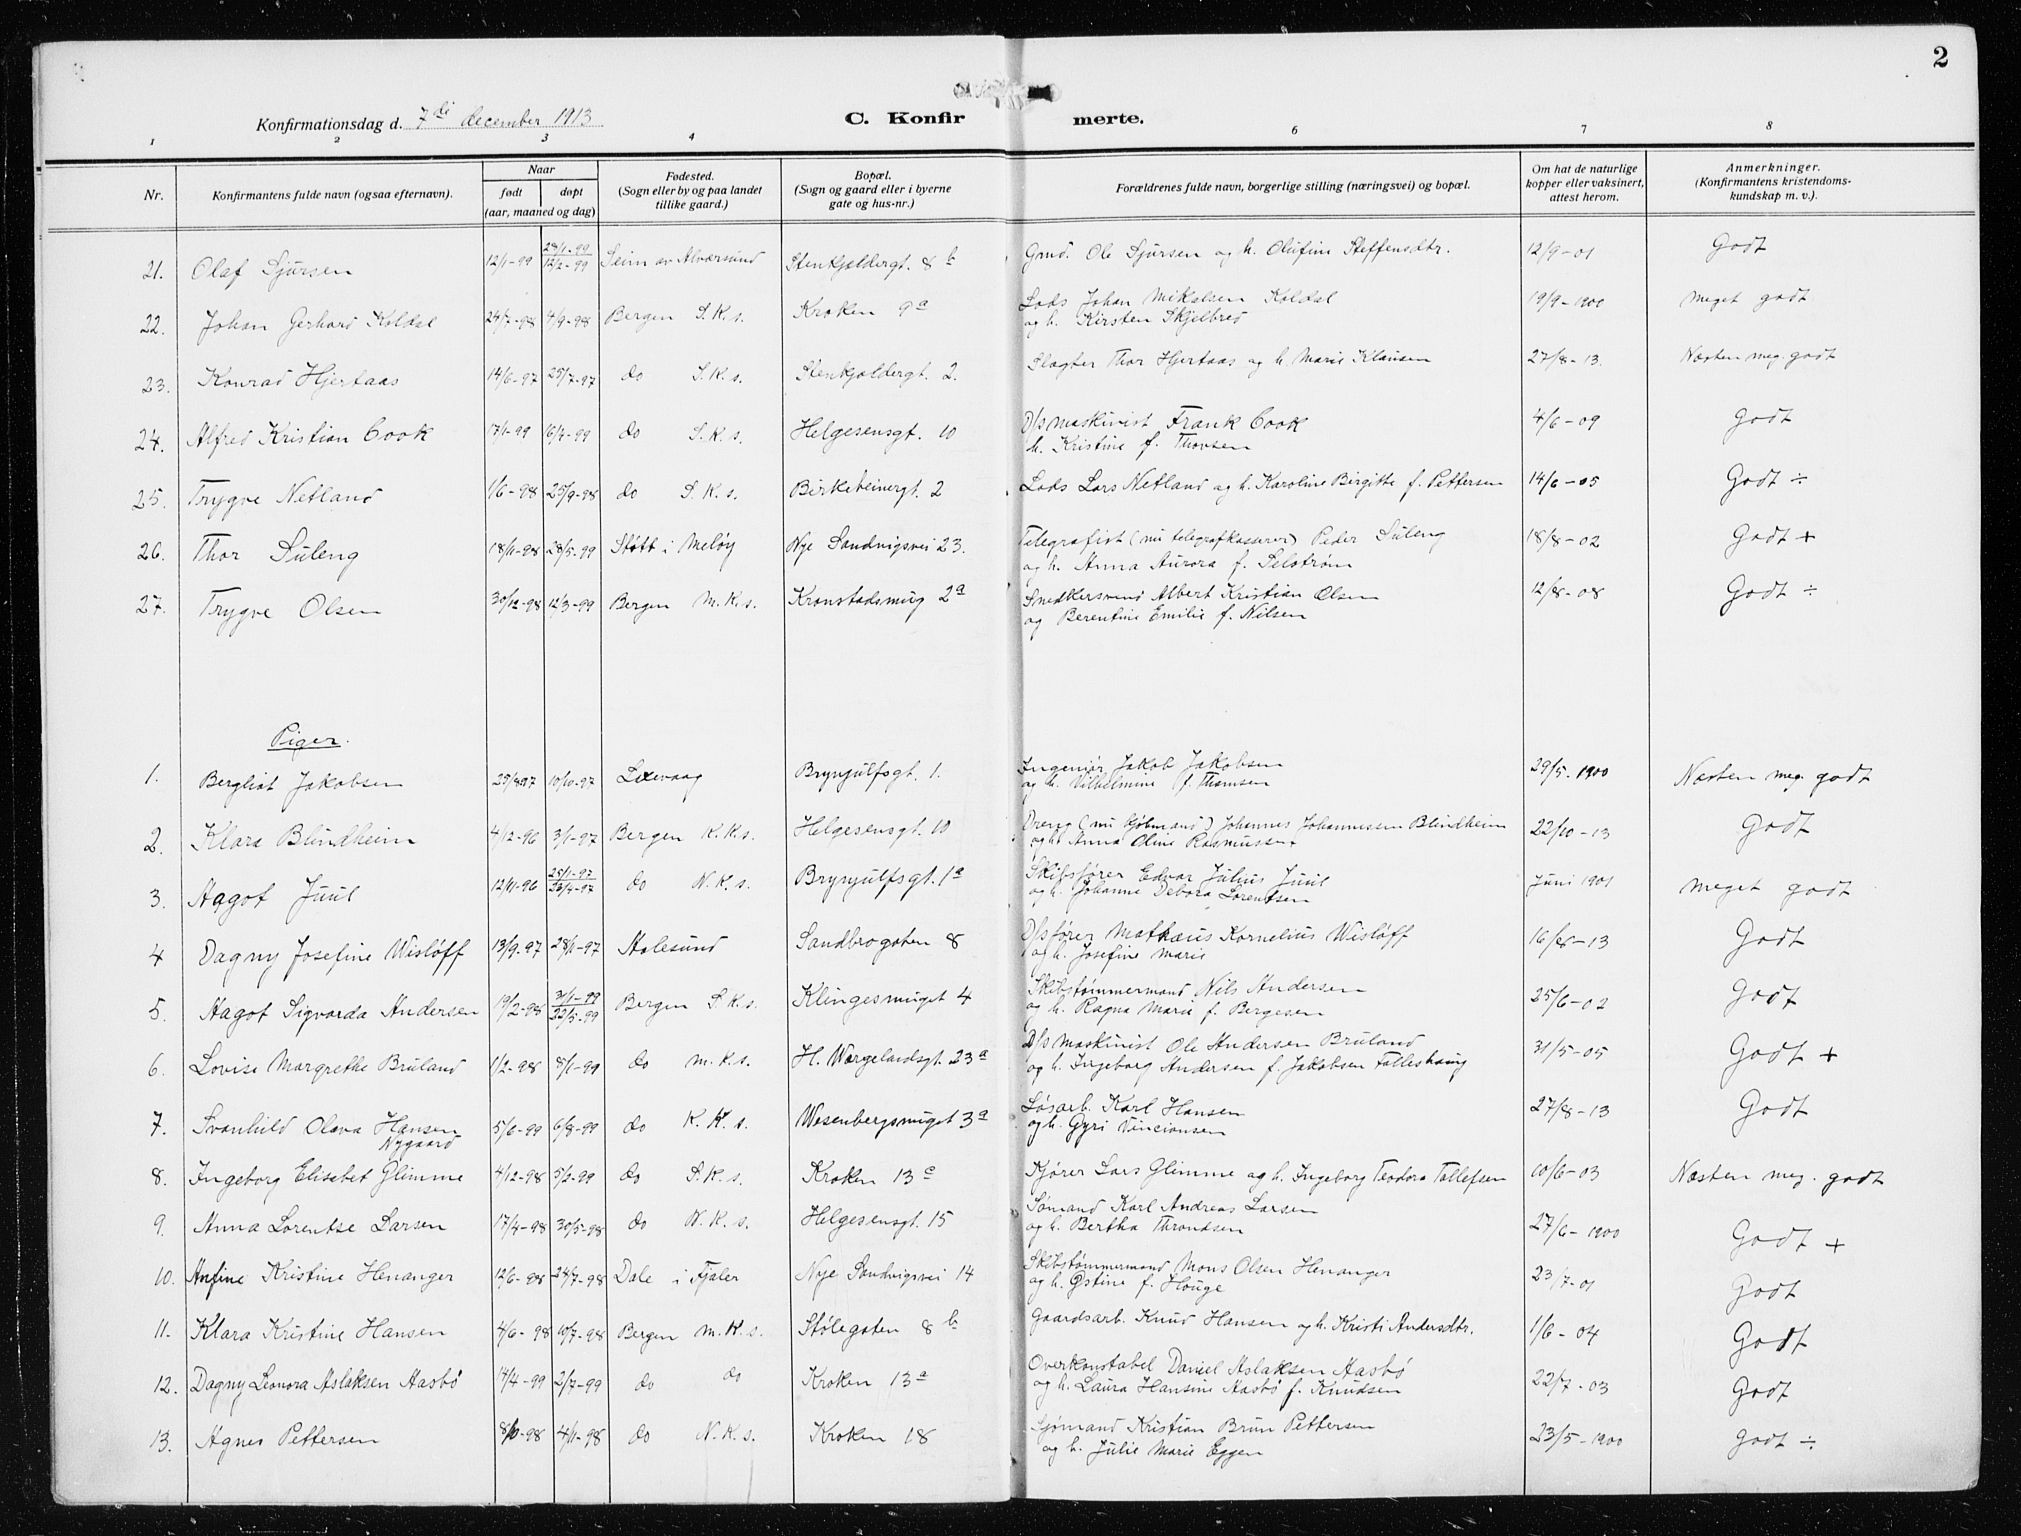 2
Konfirmationsdag d. 7di december 1913
C. Konfirmerte.
1 2 3 4 6 7 8
Nr. Konfirmantens fulde navn (ogsaa efternavn). Naar født døpt (aar, maaned og dag) Fødested. (Sogn eller by og paa landet tillike gaard.) Bopæl. (Sogn og gaard eller i byerne gate og hus-nr.) Forældrenes fulde navn, borgerlige stilling (næringsvei) og bopæl. Om hat de naturlige kopper eller vaksinert, attest herom. Anmerkninger. (Konfirmantens kristendomskundskap m. v.).
21. Olaf Sjursen 12/1-99 28/1-99 12/2-99 Seim av Alversund Stenkjeldergt. 8 b Gmd. Ole Sjursen og h. Olufine Steffensdtr. 12/9-01 Godt
22. Johan Gerhard Koldal 24/7-98 4/9-98 Bergen S.K.s. Kroken 9 a Lods Johan Mikalsen Koldal
og h. Kirsten Skjelbred 19/9-1900 meget godt
23. Konrad Hjertaas 14/6-97 25/7-97 do S.K.s. Stenkjeldergt. 2. Slagter Thor Hjertaas og h. Marie Klausen 27/8-13. Næsten meg. godt
24. Alfred Kristian Cook 17/1-99 16/4-99 do S.K.s. Helgesensgt. 10 D/s maskinist Frank Cook
h. Kristine f. Thorsen 4/6-09 Godt
25. Trygve Netland 1/6-98 25/9-98 do S.K.s. Birkebeinergt. 2 Lods Lars Netland og h. Karoline Birgitte f. Pettersen 14/6-05 Godt ÷
26. Thor Suleng 18/11-98 28/5-99 Støtt i Meløy Nye Sandvigsvei 23. Telegrafist (nu telegrafkasserer) Peder Suleng
og h. Anna Aurora f. Selstrøm 18/8-02 Godt +
27. Trygve Olsen 30/12-98 12/3-99 Bergen M.K.s. Kronstadsmug 2a Snedkersvend Albert Kristian Olsen
og Berentine Emilie f. Nilsen 12/8-08 Godt ÷
Piger.
1. Bergliot Jakobsen 25/8 97 10/10-97 Laxevaag Brynjulfsgt. 1. Ingeniør Jakob Jakobsen
og h. Vilhelmine f. Thomsen 29/5-1900 Næsten meg. godt
2. Klara Blindheim 4/12-96 3/1-97 Bergen K.K.s. Helgesensgt. 10 Dreng (nu Kjøbmand) Johannes Johannesen Blindheim
og h. Anna Oline Rasmussen 22/10-13 Godt
3. Aagot Juul 12/11-96 25/1-97 do N.K.s. Brynjulfsgt. 1a Skibsfører Edvar Julius Juul
og h. Johanne Debora Lorentsen Juni 1901 meget godt
4 Dagny Josefine Wisløff 13/9-97 28/11-97 Aalesund Sandbrogaten 8 D/s fører Mathæus Kornelius Wisløff
og h. Josefine Marie 16/8-13 Godt
5. Aagot Sigvarda Andersen 19/2-98 22/5-99 Bergen S.K.s. Klingesmuget 4 Skibstømmermand Nils Andersen
og h. Ragna Marie f. Bergesen 25/6-02 Godt
6. Lovise Margrethe Bruland 1/2-98 8/1-99 do M.K.s. H. Wergelandsgt. 23a D/s Maskinist Ole Andersen Bruland
og h. Ingeborg Andersen f. Jakobsen 31/5-05 Godt +
7. Svanhild Olava Hansen
Nygaard 5/6-99 6/8-99 do K.K.s. Wesenbergsmuget 3a Løsarb. Karl Hansen
og h. Gyri 27/8-13 Godt
8. Ingeborg Elisabet Glimme 4/12-98 5/2-99 do S.K.s. Kroken 13 c Kjører Lars Glimme og h. Ingeborg Teodora Tollefsen 10/6-03 Næsten meg. godt
9. Anna Lorentse Larsen 17/4-98 30/5-98 do N.K.s. Helgesensgt. 15 Sømand Karl Andreas Larsen
og h. Bertha Throndsen 27/6-1900 Godt +
10. Anfine Kristine Henanger 12/6-98 24/7-98 Dale i Fjaler Nye Sandvigsvei 14 Skibstømmermand Mons Olsen Henanger
og h. Østine f. Houge 23/7-01 Godt
11. Klara Kristine Hansen 4/6-98 10/7-98 Bergen M.K.s. Stølegaten 8 b Gaardsarb. Knud Hansen og h. Kristi Andersdtr. 1/6-04 Godt
12. Dagny Leonora Aslaksen Aasbø 14/4-99 2/7-99 do do Kroken 13a Overkonstabel Daniel Aslaksen Aasbø
og h. Laura Hansine Aasbø f. Knudsen 22/7-03 Godt
13. Agnes Pettersen 8/10-98 4/11-98 do N.K.s. Kroken 18 Sjømand Kristian Brun Pettersen
og h. Julie Marie Eggen 23/5-1900 Godt ÷